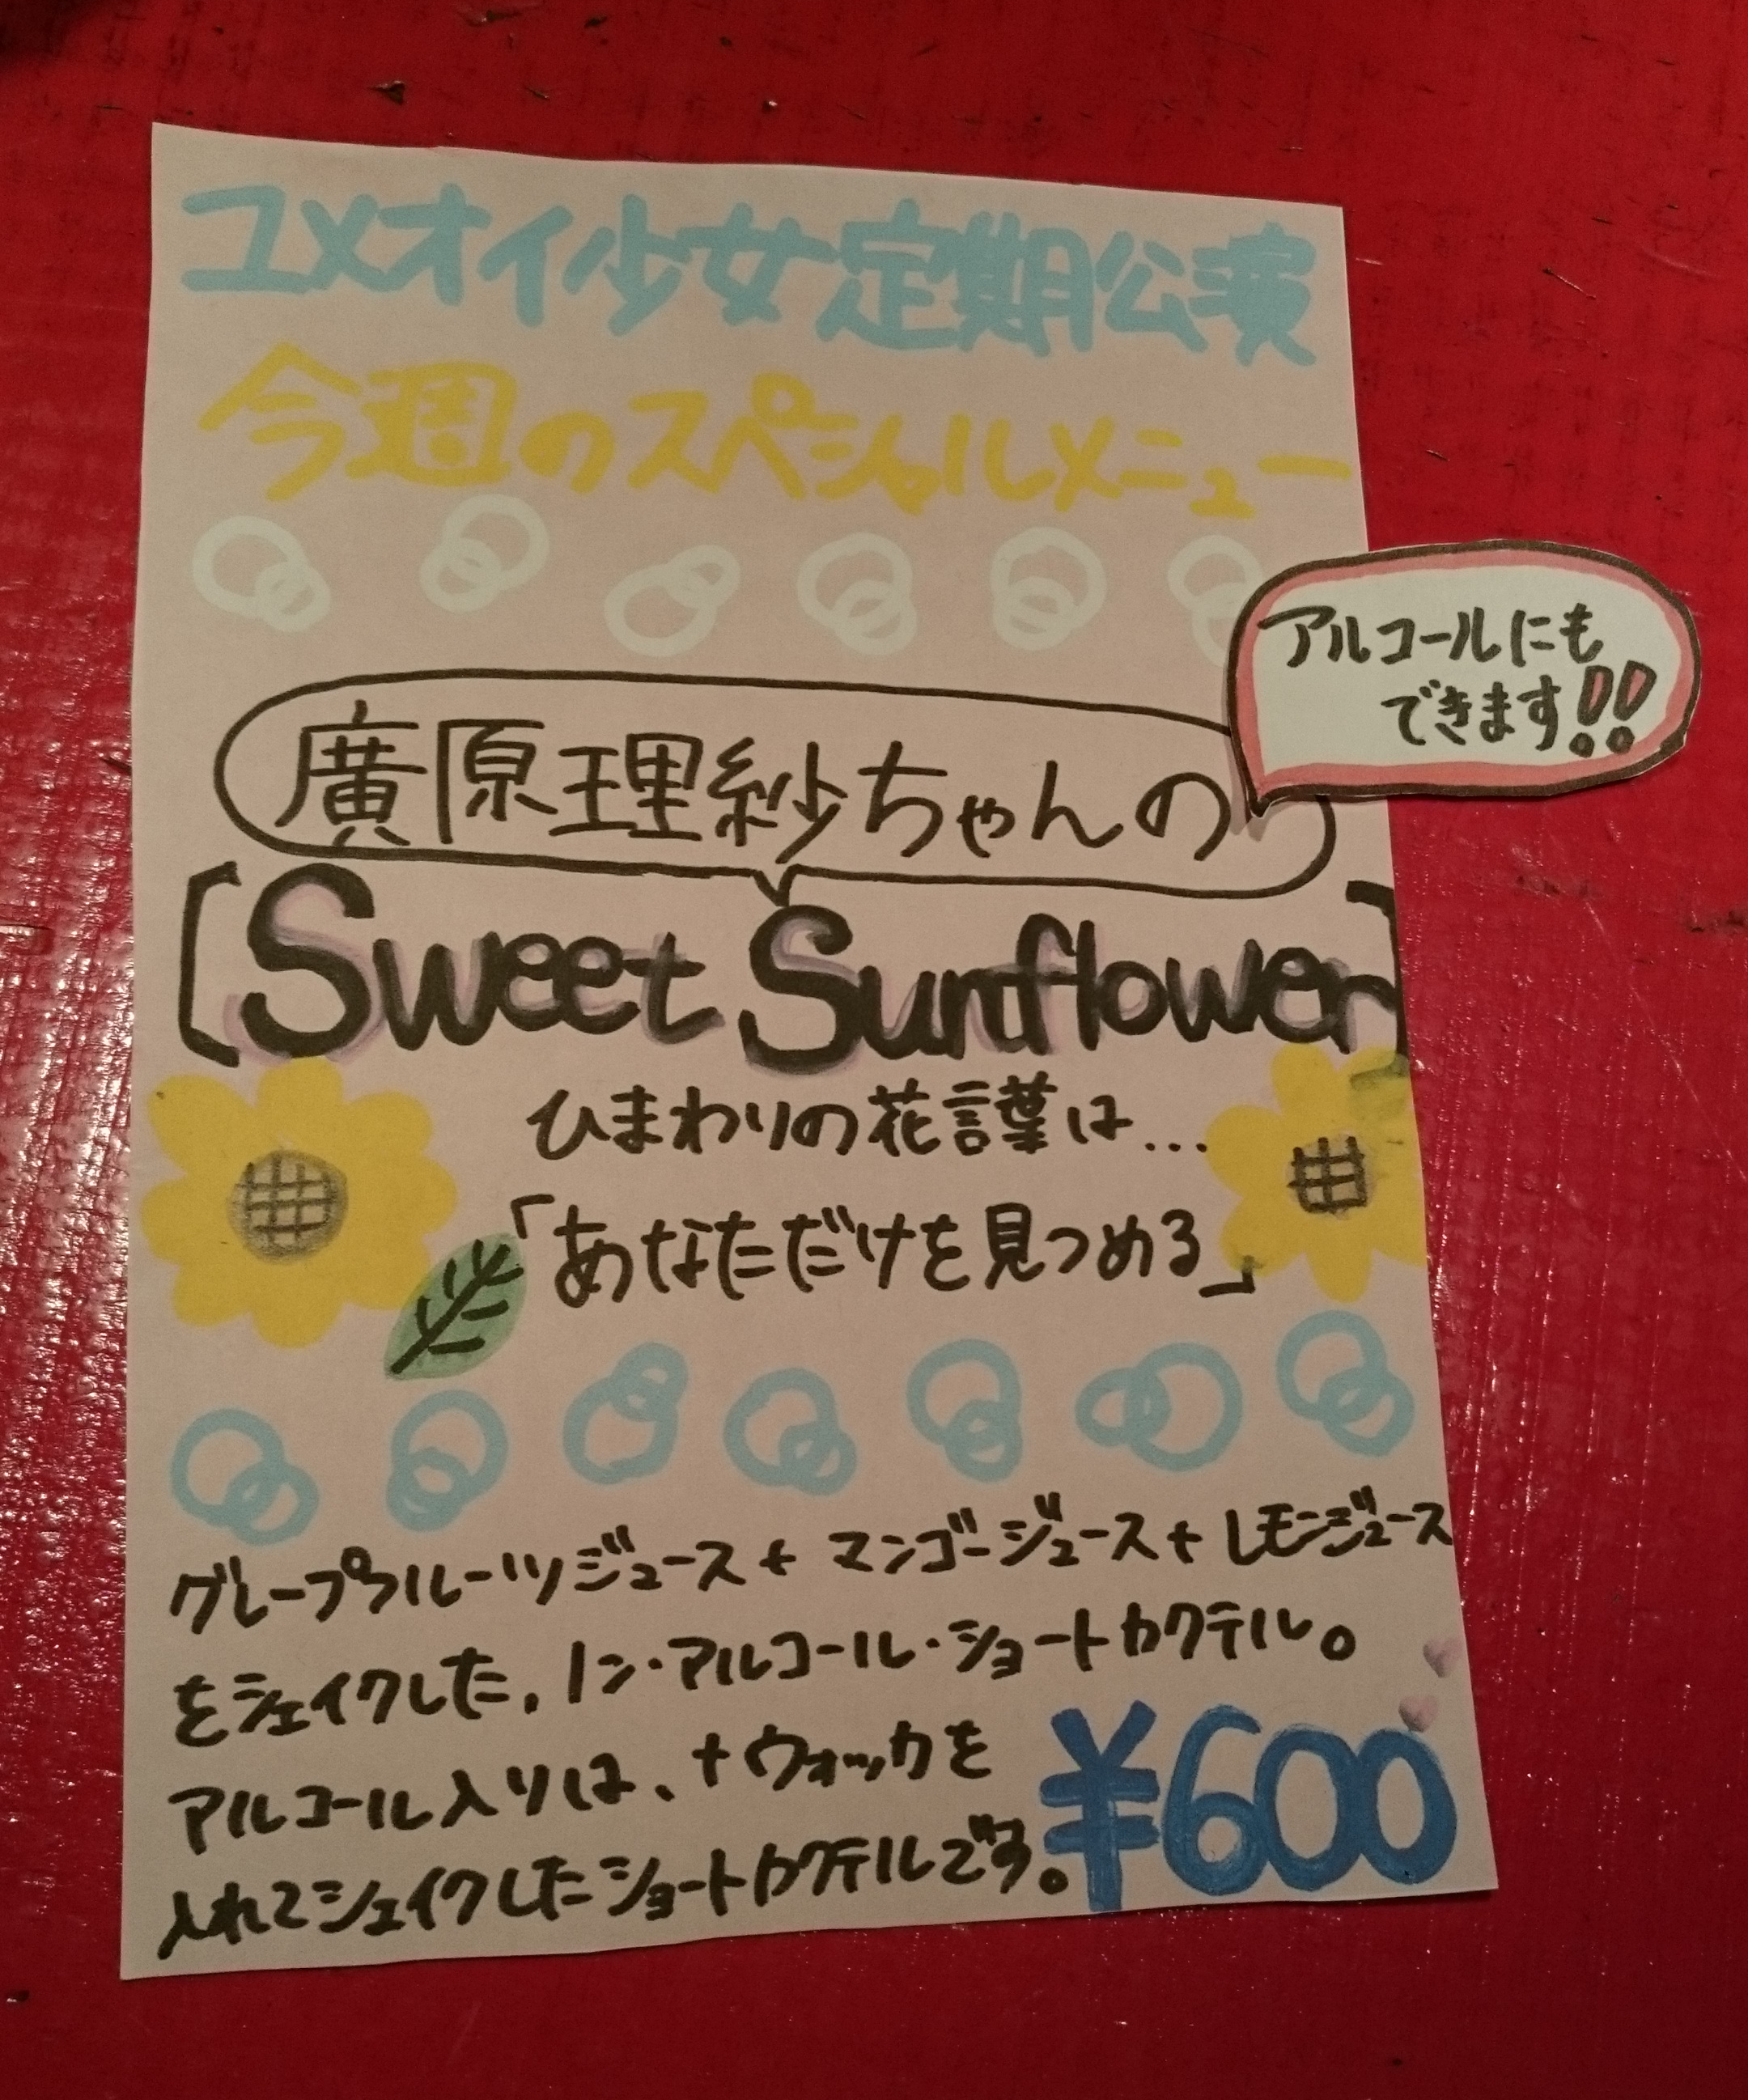 ユメオイ少女定期公演
今週のスペシャルメニュー
アルコールにも
できます!!
廣原理紗ちゃんの
[Sweet Sunflower]
ひまわりの花言葉は...
「あなただけを見つめる」
グレープフルーツジュース+マンゴージュース+レモンジュース
をシェイクした、ノン・アルコール・ショートカクテル。
アルコール入りは、+ウォッカを
入れてシェイクしたショートカクテルです。
¥600